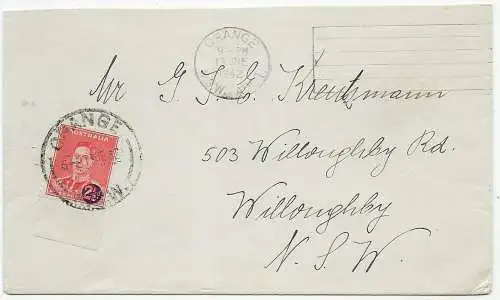 ORANGE
9 - PM
1942
N.S.W.
Mr G. J. C. Kreutzmann
503 Willoughby Rd.
Willoughby
N. S. W.
ORANGE
AUSTRALIA
2½
N.S.W.